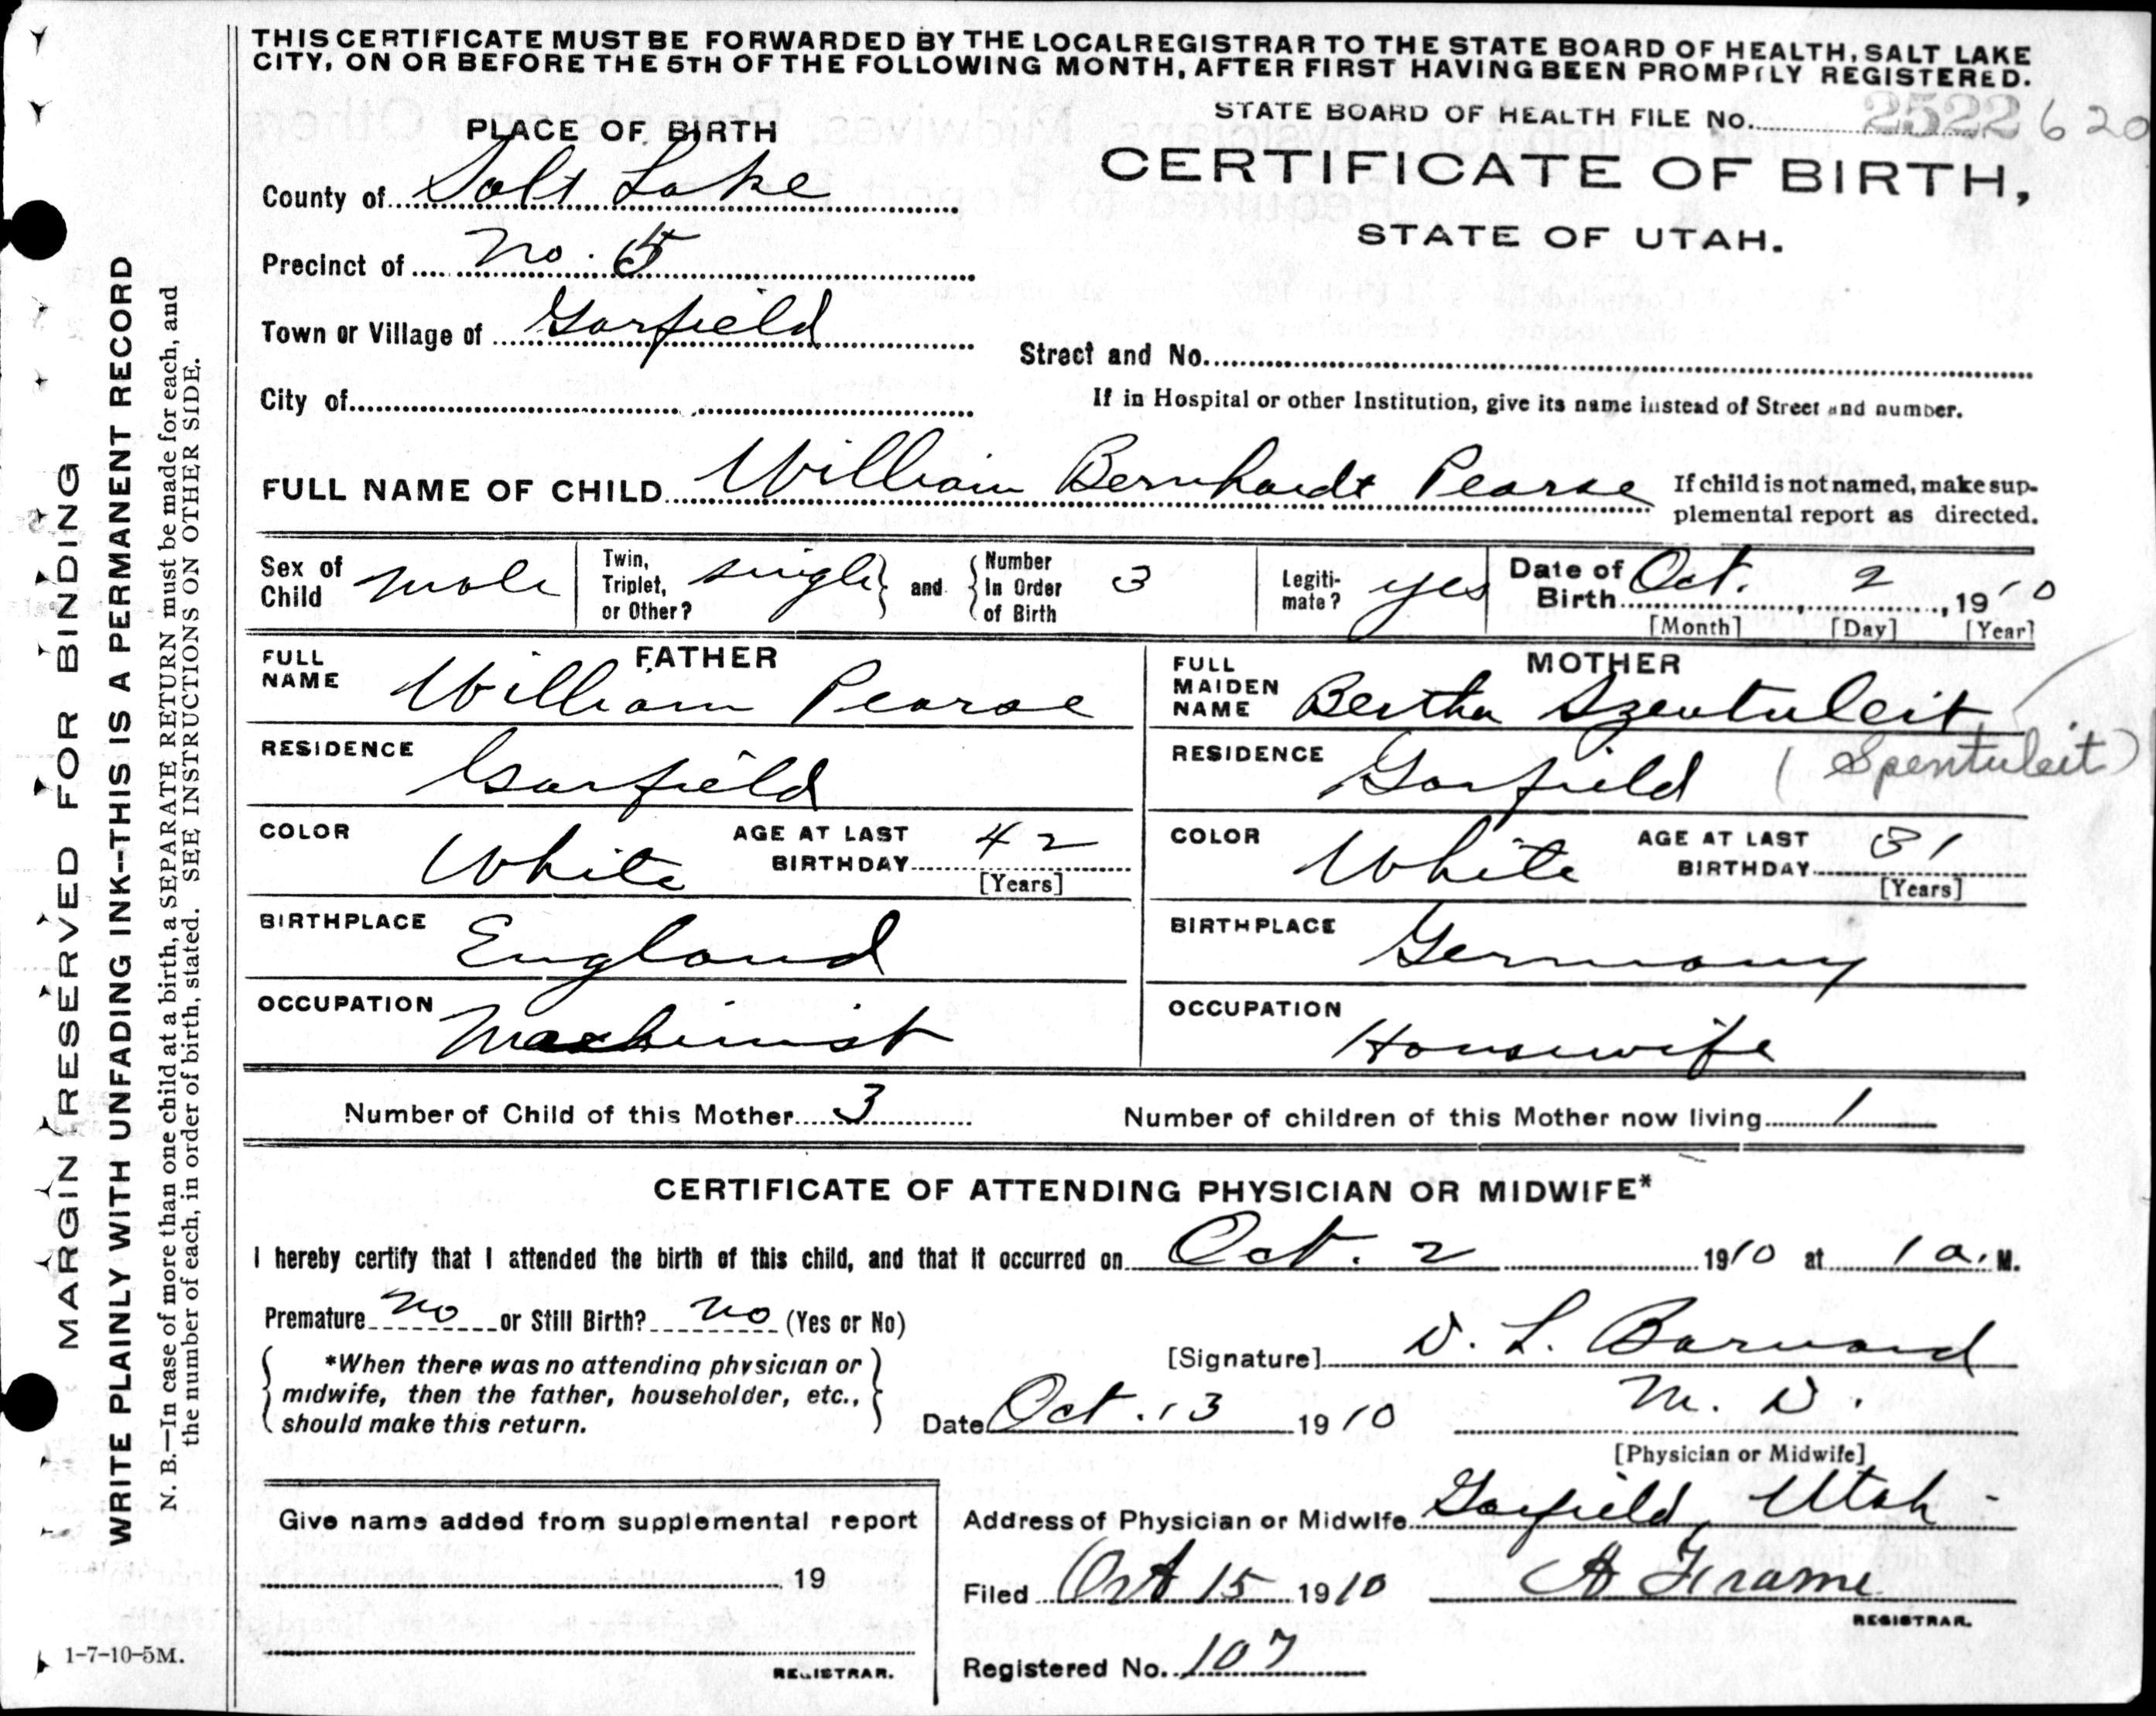 THIS CERTIFICATE MUST BE FORWARDED BY THE LOCAL REGISTRAR TO THE STATE BOARD OF HEALTH, SALT LAKE
CITY, ON OR BEFORE THE 5TH OF THE FOLLOWING MONTH, AFTER FIRST HAVING BEEN PROMPTLY REGISTERED.
STATE BOARD OF HEALTH FILE No. 2522 620
CERTIFICATE OF BIRTH,
STATE OF UTAH.
PLACE OF BIRTH
County of Salt Lake
Precinct of No. 5
Town or Village of Garfield
Street and No.
City of
If in Hospital or other Institution, give its name instead of Street and number.
FULL NAME OF CHILD William Bernhardt Pearse
If child is not named, make sup-
plemental report as directed.
Sex of Child male
Twin, Triplet, or Other? single and Number In Order of Birth 3
Legiti-mate? yes
Date of Birth Oct. 2, 1910
[Month] [Day] [Year]
FATHER
FULL NAME William Pearse
RESIDENCE Garfield
COLOR White AGE AT LAST BIRTHDAY 42
[Years]
BIRTHPLACE England
OCCUPATION Machinist
MOTHER
FULL MAIDEN NAME Bertha Szentuleit
RESIDENCE Garfield (Spentuleit)
COLOR White AGE AT LAST BIRTHDAY 31
[Years]
BIRTHPLACE Germany
OCCUPATION Housewife
Number of Child of this Mother 3 Number of children of this Mother now living 1
CERTIFICATE OF ATTENDING PHYSICIAN OR MIDWIFE*
I hereby certify that I attended the birth of this child, and that it occurred on Oct. 2 1910 at 1 a. M.
Premature no or Still Birth? no (Yes or No)
*When there was no attending physician or
midwife, then the father, householder, etc.,
should make this return.
[Signature] D. L. Barnard
Date Oct. 13 1910 M. D.
[Physician or Midwife]
Give name added from supplemental report
19
REGISTRAR.
Address of Physician or Midwife Garfield, Utah
Filed Oct 15 1910 H Frame
REGISTRAR.
Registered No. 107
MARGIN RESERVED FOR BINDING
WRITE PLAINLY WITH UNFADING INK--THIS IS A PERMANENT RECORD
N. B.—In case of more than one child at a birth, a SEPARATE RETURN must be made for each, and
the number of each, in order of birth, stated. SEE INSTRUCTIONS ON OTHER SIDE.
1-7-10-5M.